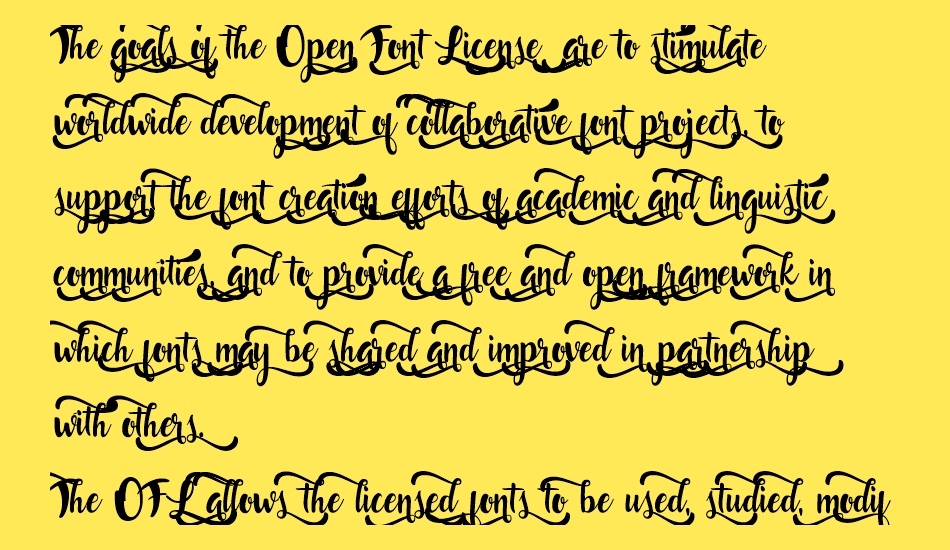 The goals of the Open Font License are to stimulate
worldwide development of collaborative font projects, to
support the font creation efforts of academic and linguistic
communities, and to provide a free and open framework in
which fonts may be shared and improved in partnership
with others.
The OFL allows the licensed fonts to be used, studied, modif